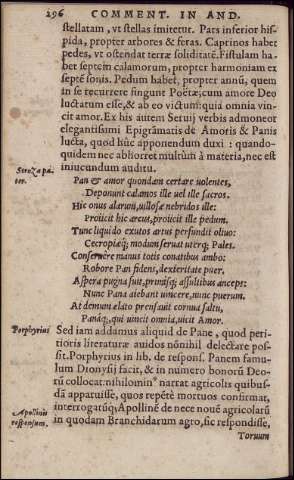 296 COMMENT. IN AND.
stellatam, vt stellas imitetur. Pars inferior his-
pida, propter arbores & feras. Caprinos habet
pedes, vt ostendat terræ soliditatē. Fistulam ha-
bet septem calamorum, propter harmoniam ex
septē sonis. Pedum habet, propter annū, quem
in se recurrere fingunt Poëtæ; cum amore Deo
luctatum esse, & ab eo victum: quia omnia vin-
cit amor. Ex his autem Seruij verbis admoneor
elegantissimi Epigrāmatis de Amoris & Panis
lucta, quod hūc apponendum duxi: quando-
quidem nec abhorret multùm à materia, nec est
iniucundum auditu.
Stroza pa-
ter.
Pan & amor quondam certare volentes,
Deponunt calamos ille vel ille sacros.
Hic onus alarum, villosæ nebridos ille:
Proiicit hic arcus, proiicit ille pedum.
Tunc liquido exutos artus perfundit oliuo:
Cecropiæq; modum seruat vterq; Pales.
Conseruere manus totis conatibus ambo:
Robore Pan fidens, dexteritate puer.
Aspera pugna fuit, primisq; assultibus anceps:
Nunc Pana aiebant vincere, nunc puerum.
At demum elato prensauit cornua saltu,
Panáq;, qui vincit omnia, vicit Amor.
Porphyrius
Sed iam addamus aliquid de Pane, quod peri-
tioris literaturæ auidos nōnihil delectare pos-
sit. Porphyrius in lib. de respons. Panem famu-
lum Dionysij facit, & in numero bonorū Deo-
rū collocat: nihilomin⁹ narrat agricolis quibus-
dā apparuisse, quos repētè mortuos confirmat,
Apollinis
responsum.
interrogatūq; Apollinē de nece nouē agricolarū
in quodam Branchidarum agro, sic respondisse,
Toruum